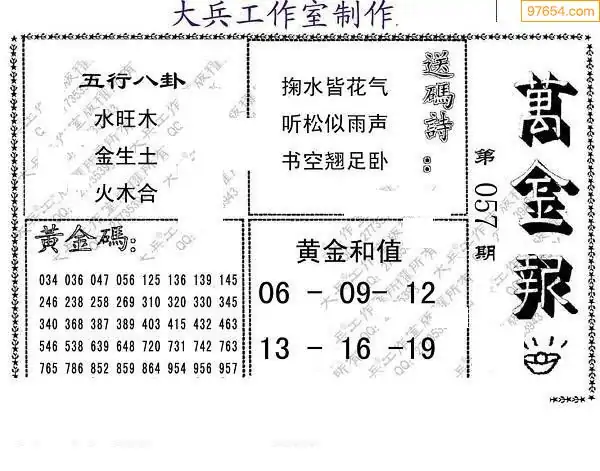 大兵工作室制作
97654.com
五行八卦
水旺木
金生土
火木合
送碼詩:
掬水皆花气
听松似雨声
书空翘足卧
萬金報
第 057 期
黃金碼:
034 036 047 056 125 136 139 145
246 238 258 269 310 320 330 345
340 368 387 389 403 415 432 463
546 538 639 648 720 731 742 763
765 786 852 859 864 954 956 957
黄金和值
06 - 09- 12
13 - 16 -19